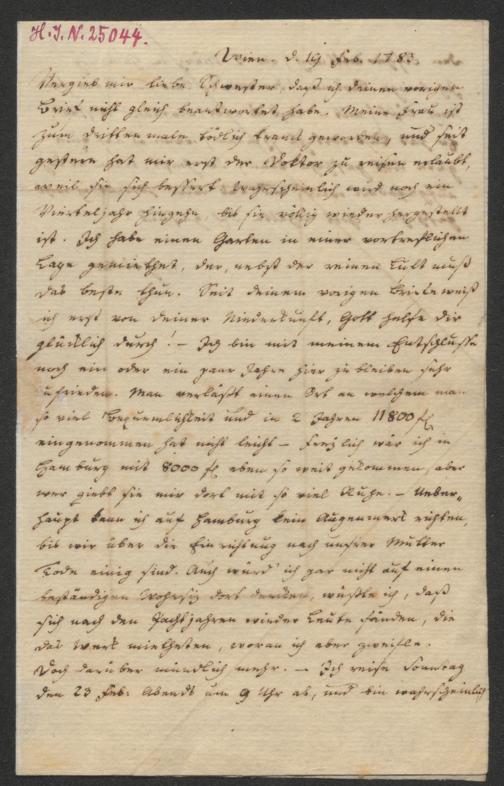 H. I. N. 25044.
Wien. d. 19 Feb. 1783.
Vergieb mir liebe Schwester, daß ich deinen vorigen
Brief nicht gleich beantwortet habe. Meine Frau ist
zum drittenmale tödlich krank geworden, und seit
gestern hat mir erst der Doktor zu reisen erlaubt,
weil sie sich bessert. Wahrscheinlich wird noch ein
Vierteljahr hingehn bis sie völlig wieder hergestellt
ist. Ich habe einen Garten in einer vortreflichen
Lage gemiethet, der, nebst der reinen Luft muß
das beste thun. Seit deinem vorigen Briefe weiß
ich erst von deiner Niederkunft, Gott helfe dir
glücklich durch! – Ich bin mit meinem Entschlusse
noch ein oder ein paar Jahre hier zu bleiben sehr
zufrieden. Man verläßt einen Ort an welchem man
so viel Bequemlichkeit und in 2 Jahren 11800 f
eingenommen hat nicht leicht – Freilich wär ich in
Hamburg mit 8000 f eben so weit gekommen, aber
wer giebt sie mir dort mit so viel Ruhe. – Ueber„
haupt kann ich auf Hamburg kein Augenmerk richten,
bis wir über die Einrichtung nach unsrer Mutter
Tode einig sind. Auch würd' ich gar nicht auf einen
beständigen Wohnsitz dort denken, wüßte ich, daß
sich nach den Pachtjahren wieder Leute fänden, die
das Werk mietheten, woran ich aber zweifle.
Doch darüber mündlich mehr. – Ich reise Sonntag
den 23 Feb: Abends um 9 Uhr ab, und bin wahrscheinlich